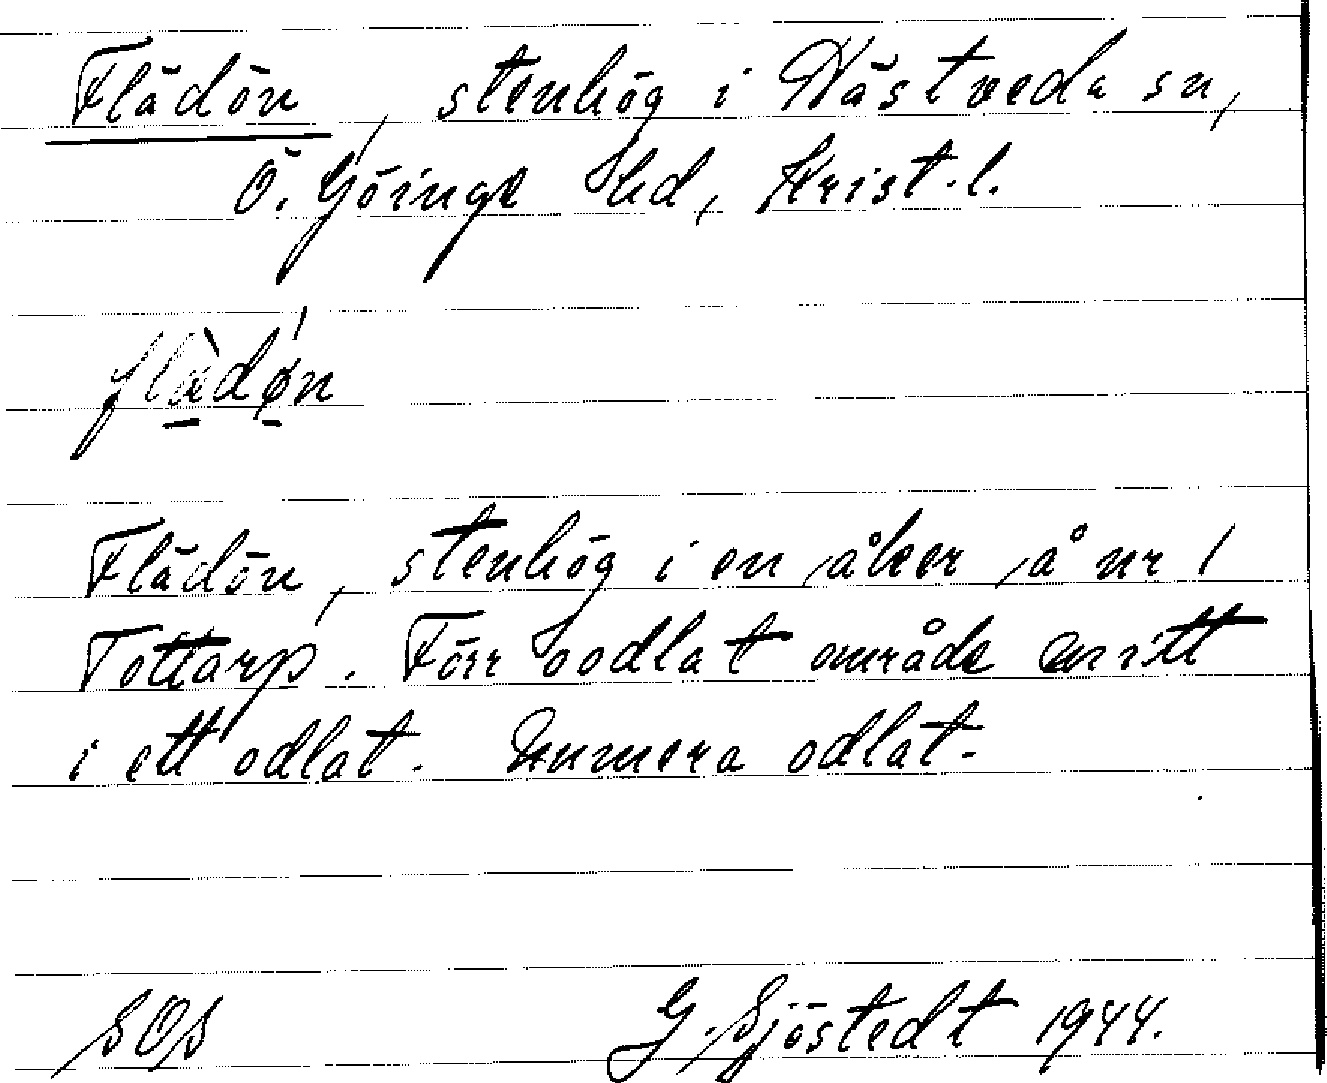 Flädön, stenhög i Hästveda sn,
Ö. Göinge hd, Krist.l.
flæ̀dǿn
Flädön, stenhög i en åker å nr 1
Tottarp. Förr oodlat område mitt
i ett odlat. Numera odlat.
SOS G. Sjöstedt 1944.